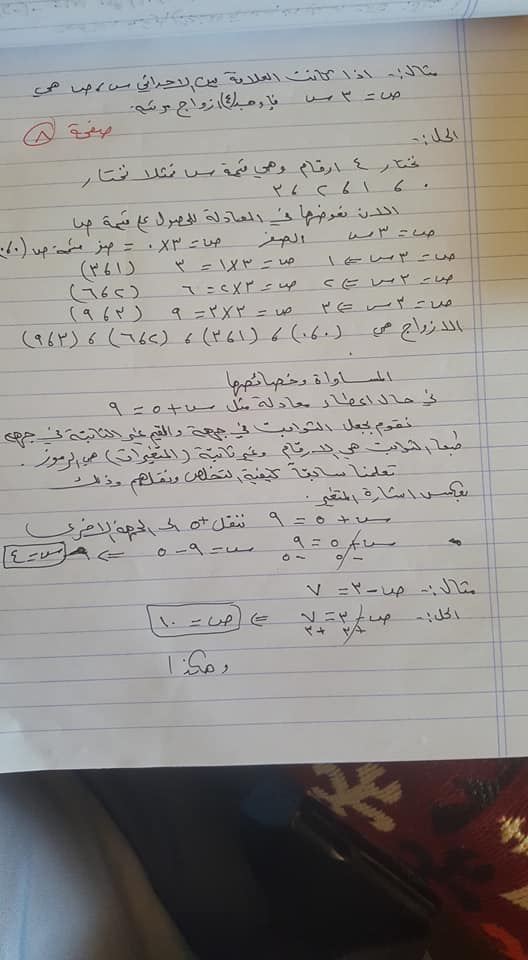 مثال:- اذا كانت العلاقة بين الاحداثي س ، ص هي
ص = ٣س فأوجد (٤) ازواج مرتبه.
صفحة ٨
الحل:-
نختار ٤ ارقام وهي قيمة س فمثلا نختار
٠ ، ١ ، ٢ ، ٣
الان نعوضها في المعادلة للحصول على قيمة ص
ص = ٣س الصفر ص = ٣×٠ = صفر ص (٠،٠)
ص = ٣س ⇐ ١ ص = ٣×١ = ٣ (١،٣)
ص = ٣س ⇐ ٢ ص = ٣×٢ = ٦ (٢،٦)
ص = ٣س ⇐ ٣ ص = ٣×٣ = ٩ (٣،٩)
الازواج هي (٠،٠) ، (١،٣) ، (٢،٦) ، (٣،٩)
المساواة وخصائصها
في حال اعطاء معادلة مثل س + ٥ = ٩
نقوم بجعل الثوابت في جهة والقيم غير الثابتة في جهه
طبعا الثوابت هي الارقام وغير ثابتة (المتغيرات) هي الرموز.
تعلمنا سابقاً كيفية التخلص ونقلهم وذلك
بعكس اشارة المتغير.
س + ٥ = ٩ ننقل +٥ الى الجهة الاخرى
س + ٥ = ٩ س = ٩ - ٥ ⇐ س = ٤
-٥ -٥
مثال:- ص - ٣ = ٧
الحل:- ص - ٣ = ٧ ⇐ ص = ١٠
+٣ +٣
وهكذا